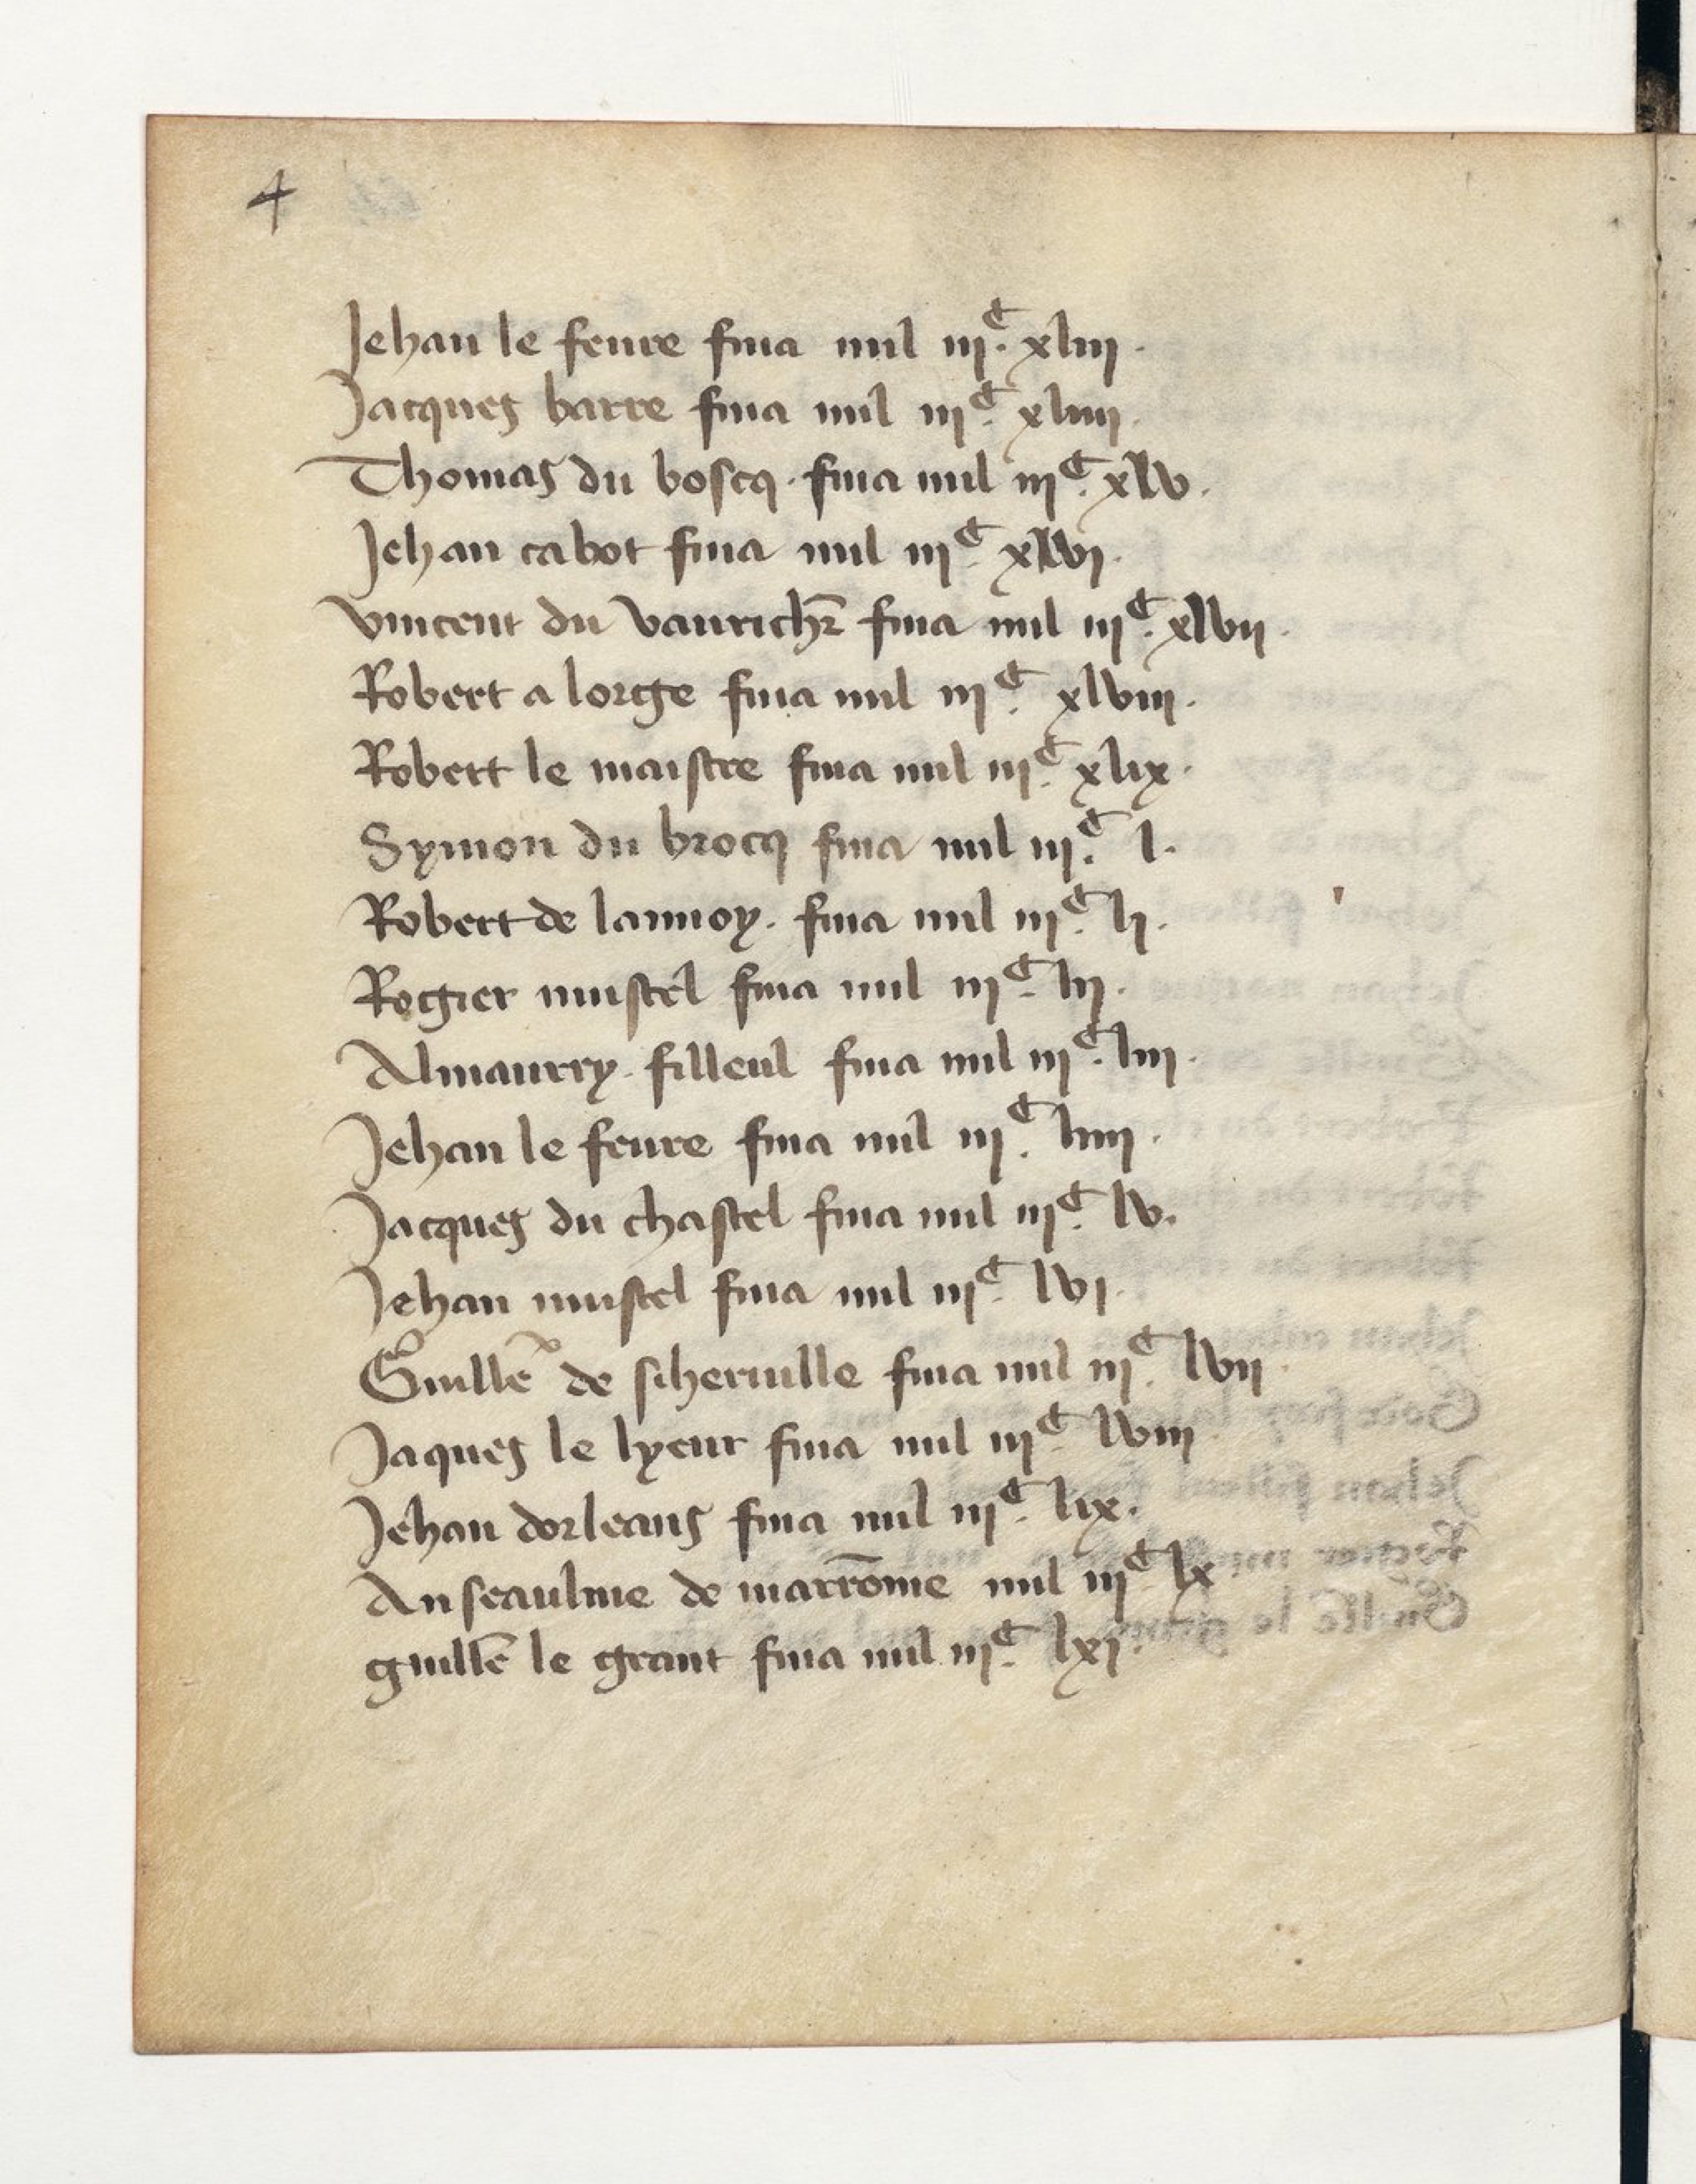 4
Jehan le feure fina mil iijᶜ. xliij.
Jacques barre fina mil iijᶜ. xliiij.
Thomas du boscq. fina mil iijᶜ. xlv.
Jehan cabot fina mil iijᶜ. xlvj.
vincent du vaurichr̄ fina mil iijᶜ. xlvij.
Robert a lorge fina mil iijᶜ. xlviij.
Robert le maistre fina mil iijᶜ. xlix.
Symon du brocq fina mil iijᶜ. l.
Robert de lannoy. fina mil iijᶜ. lj.
Rogier mustel fina mil iijᶜ. lij.
Almaurry. filleul fina mil iijᶜ. liij.
Jehan le feure fina mil iijᶜ. liiij.
Jacques du chastel fina mil iijᶜ. lv.
Jehan mustel fina mil iijᶜ. lvj.
Guillē de siheruille fina mil iijᶜ. lvij
Jaques le lyeur fina mil iijᶜ. lviij
Jehan dorleans fina mil iijᶜ. lix.
Anseaulme de marrōme mil iijᶜ lx
guillē le grant fina mil iijᶜ. lxj.